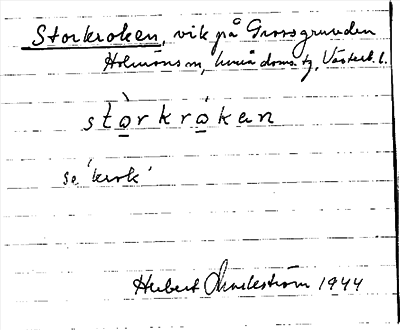 Storkroken, vik på Grossgrunden
Holmöns sn, Umeå doms. tg, Västerb. l.
stòrkrókan
se 'kirk'
Herbert Gundeström 1944